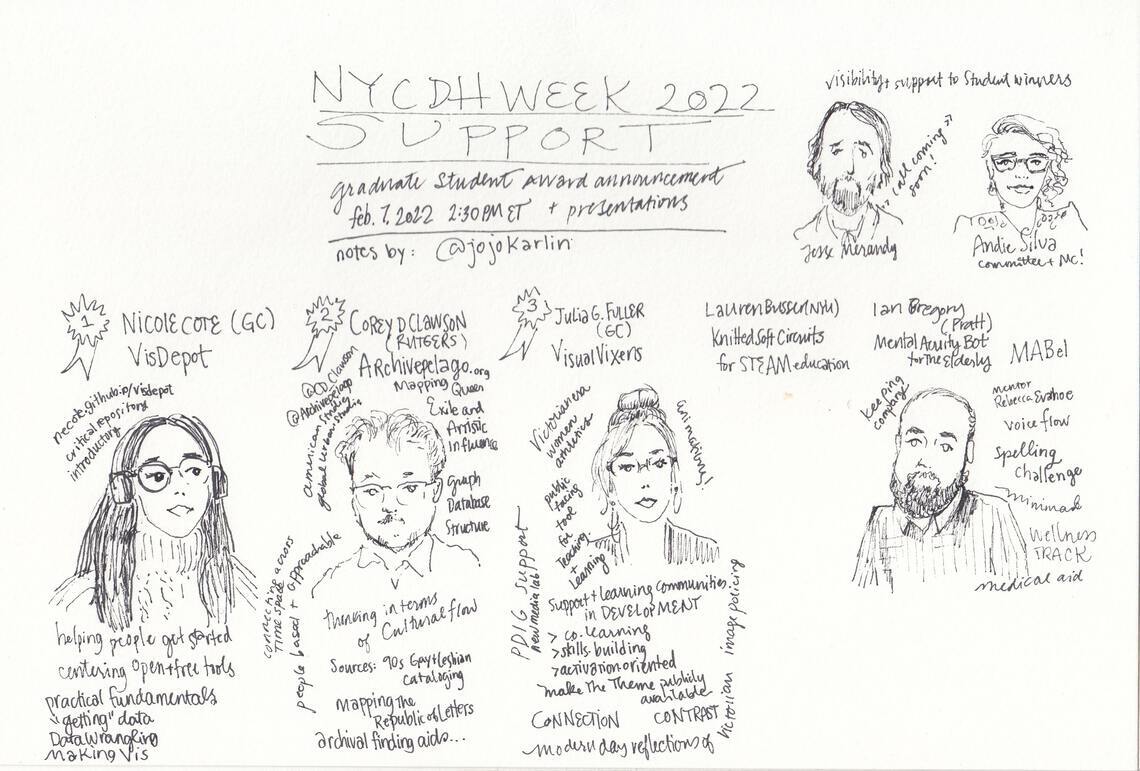 NYCDH WEEK 2022
SUPPORT
graduate student award announcement
feb. 7, 2022 2:30PM ET + presentations
notes by: @jojokarlin
visibility + support to student winners
call coming soon!
Jesse Merandy
Andie Silva
committee + MC!
1
NICOLE COTE (GC)
VisDepot
necote.github.io/visdepot
critical repository
introductory
helping people get started
centering open + free tools
practical fundamentals
"getting" data
Data Wrangling
Making Vis
2
COREY D CLAWSON
(RUTGERS)
ARCHIVEPELAGO.org
Mapping Queer
Exile and
Artistic
Influence
@CD_Clawson
@Archivepelago
american studies
global urban studies
Graph
Database
Structure
connecting across
time space
people based + approachable
thinking in terms
of cultural flow
Sources: 90s Gay + lesbian
cataloging
Mapping the
Republic of Letters
archival finding aids...
3
Julia G. FULLER
(GC)
Visual Vixens
Victorian era
women
athletics
animations!
public
facing
tool
for
Teaching
+
Learning
PDIG support
new media lab
Support + learning communities
in DEVELOPMENT
> co. learning
> skills-building
> activation-oriented
make the theme publicly
available
CONNECTION CONTRAST
modern day reflections of
Victorian image policing
Lauren Busser (NYU)
Knitted Soft Circuits
for STEAM education
Ian Gregory
(Pratt)
Mental Acuity Bot
for the Elderly
MABel
keeping
company
mentor
Rebecca Evahoe
voice flow
spelling
challenge
minimad
WELLNESS
TRACK
medical aid